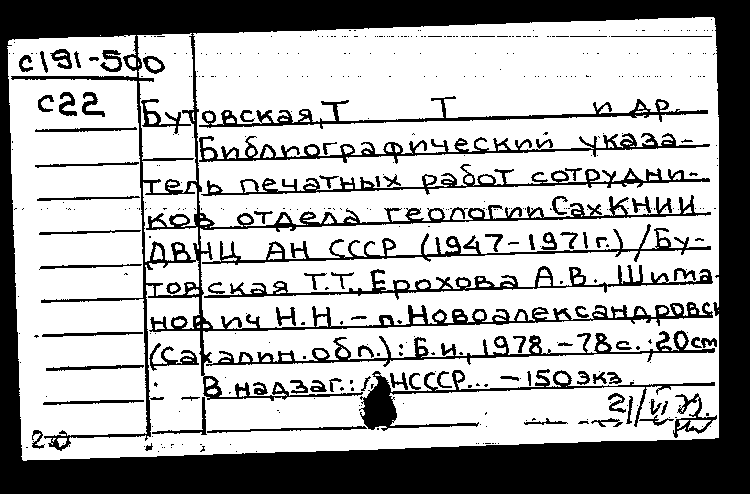 с191-500
с22
Бутовская, Т Т и др.
Библиографический указа-
тель печатных работ сотрудни-
ков отдела геологии СахКНИИ
ДВНЦ АН СССР (1947-1971г.) / Бу-
товская Т.Т., Ерохова А.В., Шима-
нович Н.Н. – п. Новоалександровск
(Сахалин. обл.): Б.и., 1978. – 78 с.; 20 cm
: В надзаг.: АН СССР... – 150 экз.
21/VI 79.
2.0